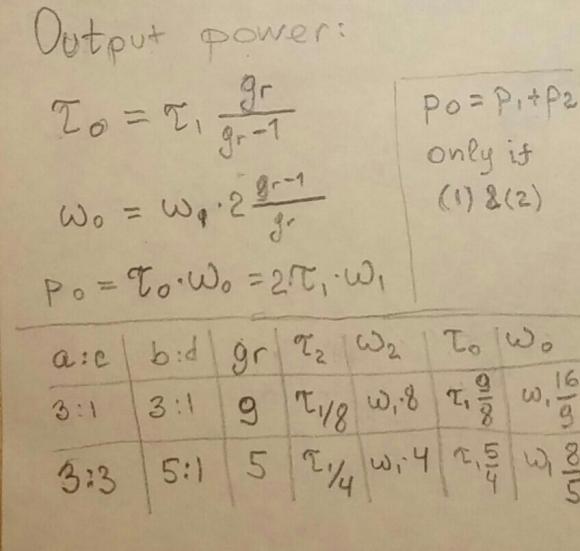 Output power:
τ₀ = τ₁ gr/(gr-1)
ω₀ = ω₁·2 (gr-1)/gr
p₀ = τ₀·ω₀ = 2τ₁·ω₁
p₀ = p₁+p₂
only if
(1) &(2)
a:c b:d gr τ₂ ω₂ τ₀ ω₀
3:1 3:1 9 τ₁/8 ω₁·8 τ₁ 9/8 ω₁ 16/9
3:3 5:1 5 τ₁/4 ω₁·4 τ₁ 5/4 ω₁ 8/5